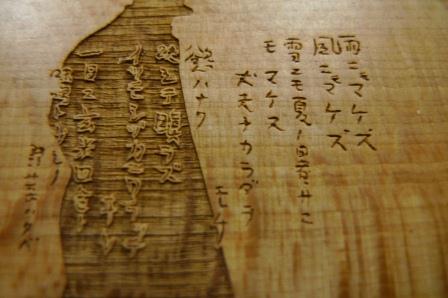 雨ニモマケズ
風ニモマケズ
雪ニモ夏ノ暑サニ
モマケヌ
丈夫ナカラダヲ
モチ
慾ハナク
決シテ瞋ラズ
イツモシヅカニワラッテヰル
一日ニ玄米四合ト
野菜ヲタベ